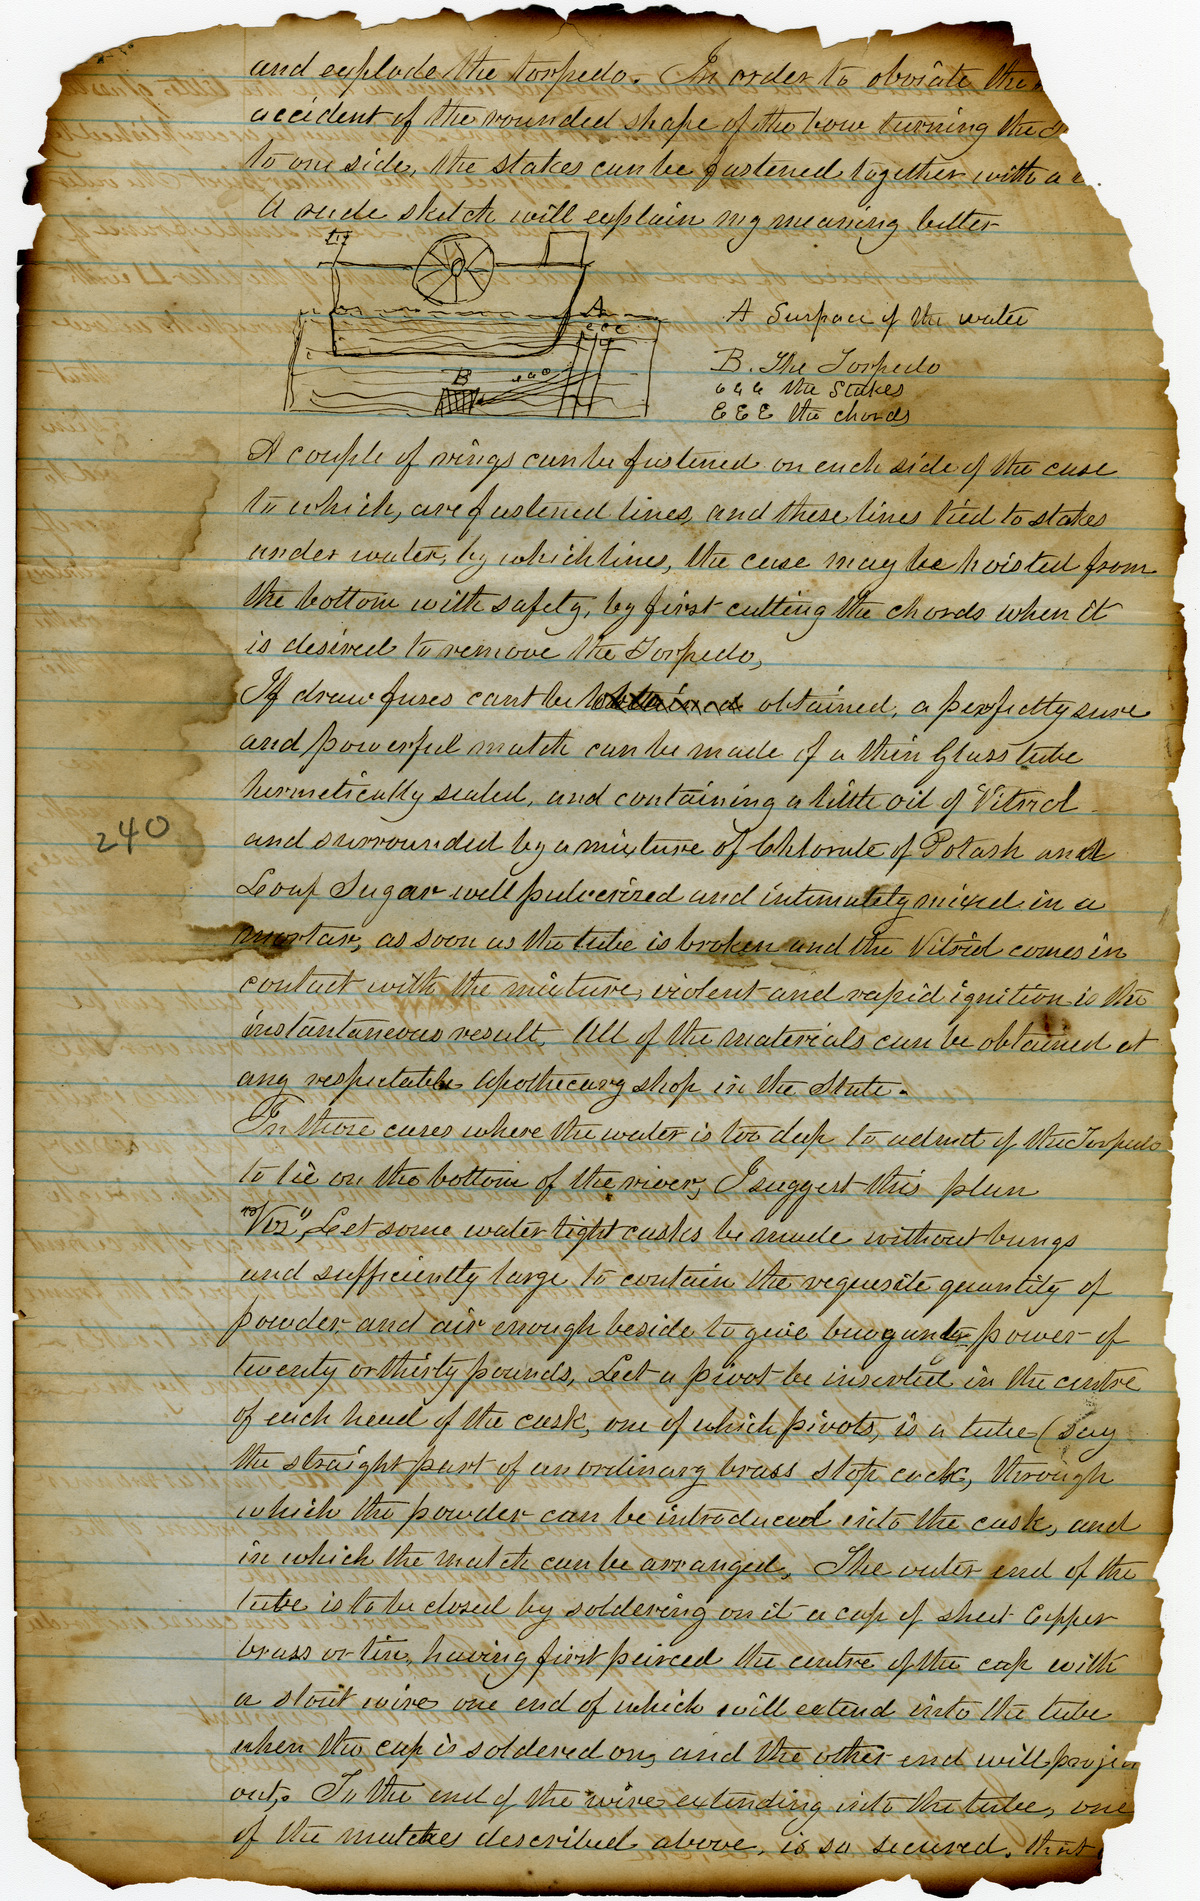 and explode the torpedo. In order to obviate the
accident of the rounded shape of the bow turning the
to one side, the stakes can be fastened together with a
A rude sketch will explain my meaning better
A
e e e
B
A Surface of the water
B. The Torpedo
the Stakes
E E E the chords
A couple of rings can be fastened on each side of the case
to which, are fastened lines, and these lines tied to stakes
under water, by which lines, the case may be hoisted from
the bottom with safety, by first cutting the chords when it
is desired to remove the Torpedo,
If draw fuses cant be obtained, a perfectly sure
and powerful match can be made of a thin Glass tube
hermetically sealed, and containing a little oil of Vitriol
and surrounded by a mixture of Chlorate of Potash and
Loaf Sugar well pulverized and intimately mixed in a
mortar, as soon as the tube is broken and the Vitriol comes in
contact with the mixture, violent and rapid ignition is the
instantaneous result, All of the materials can be obtained at
any respectable apothecary shop in the State.
240
In those cases where the water is too deep to admit of the Torpedo
to lie on the bottom of the river, I suggest this plan
"Viz", Let some water tight casks be made without bungs
and sufficiently large to contain the requisite quantity of
powder, and air enough beside to give buoyant power of
twenty or thirty pounds, Let a pivot be inserted in the centre
of each head of the cask, one of which pivots, is a tube (say
the straight part of an ordinary brass stop cock, through
which the powder can be introduced into the cask, and
in which the match can be arranged, The outer end of the
tube is to be closed by soldering on it a cap of sheet Copper
brass or tin, having first peirced the centre of the cap with
a stout wire one end of which will extend into the tube
when the cap is soldered on, and the other end will projec
out,. To the end of the wire extending into the tube, one
of the matches described above, is so secured, that